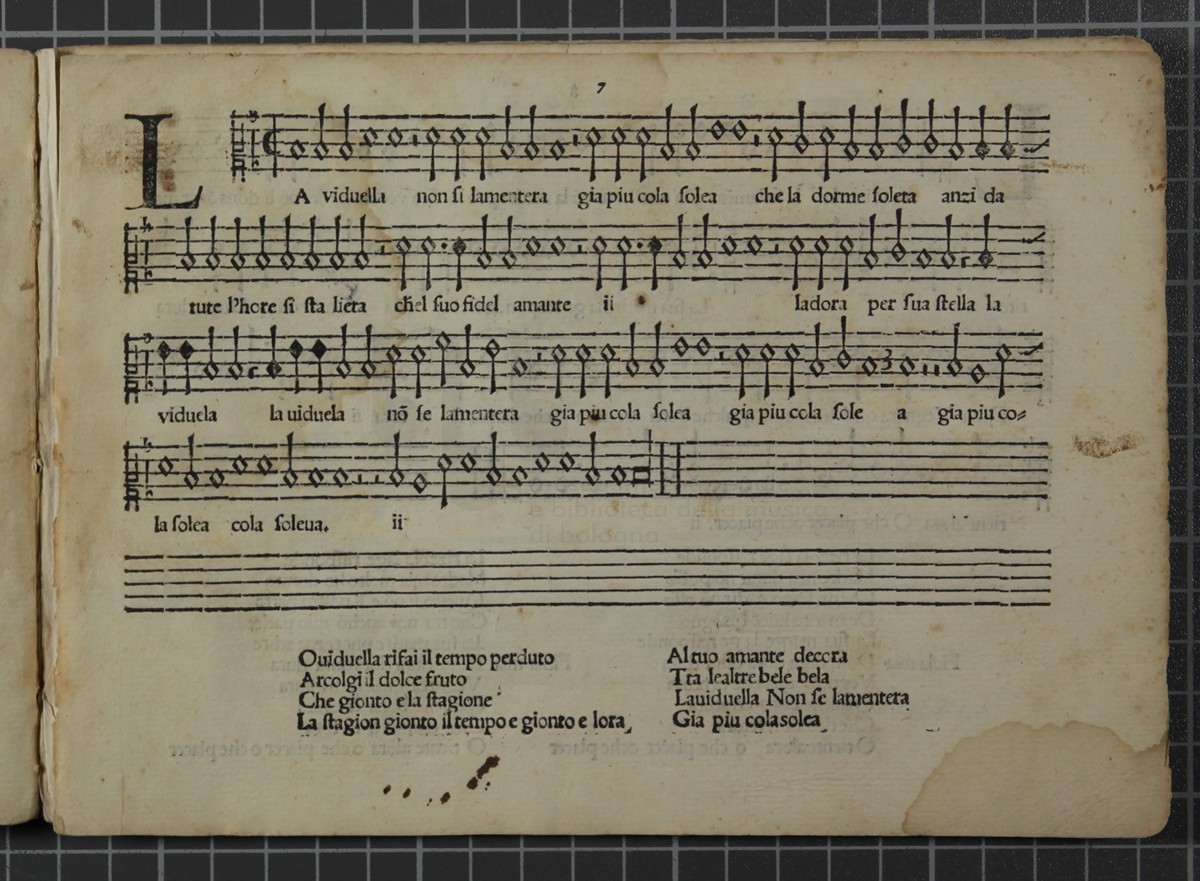 7
LA viduella non si lamentera gia piu cola solea che la dorme soleta anzi da
tute l'hore si sta lieta chel suo fidel amante ii ladora per sua stella la
viduela la uiduela nõ se lamentera gia piu cola solea gia piu cola sole a gia piu co=
la solea cola soleua. ii
e biblioteca della musica
di bologna
Ouiduella rifai il tempo perduto
Arcolgi il dolce fruto
Che gionto e la stagione
La stagion gionto il tempo e gionto e lora
Al tuo amante decora
Tra lealtre bele bela
Lauiduella Non se lamentera
Gia piu colasolea